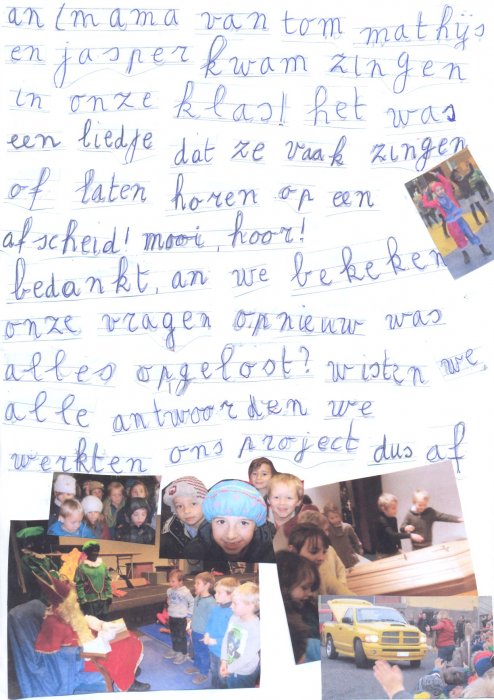 an (mama van tom mathijs
en jasper kwam zingen
in onze klas! het was
een liedje dat ze vaak zingen
of laten horen op een
afscheid! mooi, hoor!
bedankt, an we bekeken
onze vragen opnieuw was
alles opgelost? wisten we
alle antwoorden we
werkten ons project dus af